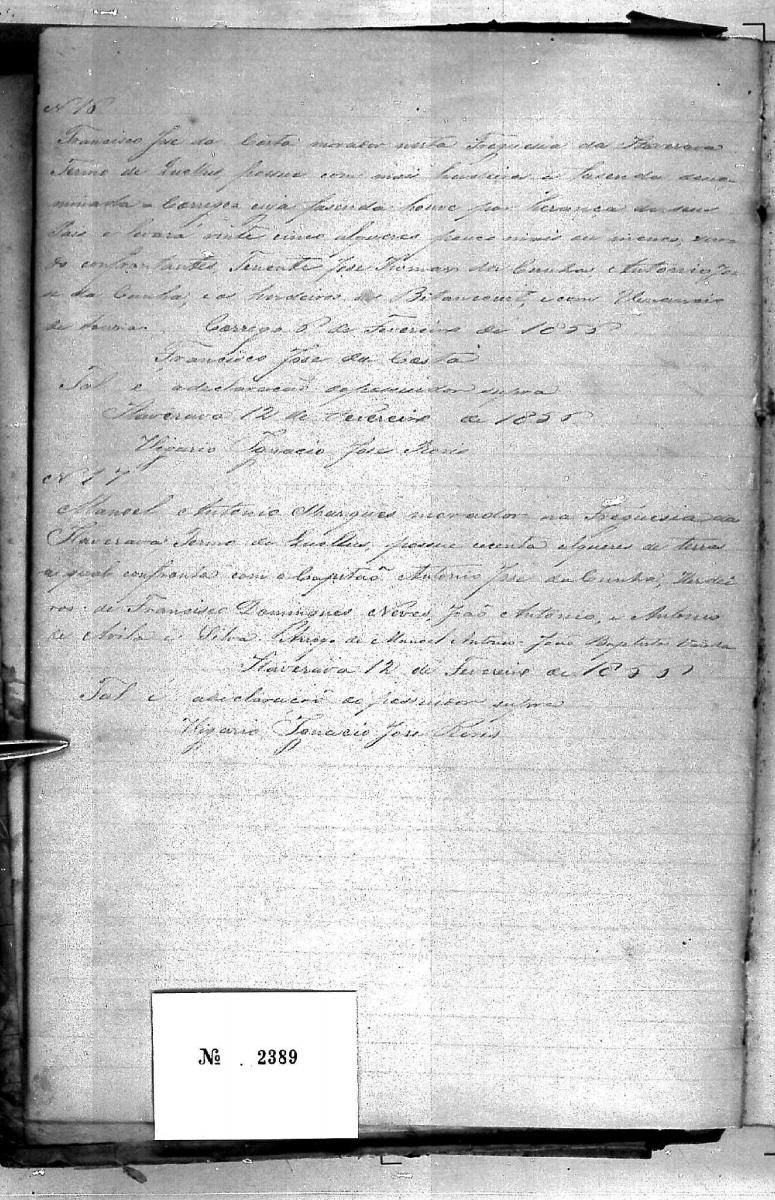 N 16
Francisco Jose da Costa morador nesta Freguesia da Itaverava
Termo de Quellus, possue com mais herdeiros a fasenda deno-
minada - Corrego cuja fasenda houve por herança de seus
Pais e levará vinte cinco alqueres pouco mais ou menos, sen-
do confrontantes, Tenente Jose Romão da Cunha, Antonio Jo-
se da Cunha, e os herdeiros de Bitancourt, e com
de Souza. Corrego 8 de Fevereiro de 1855
Francisco Jose da Costa
Tal e adeclaracaõ do possuidor supra
Itaverava 12 de Fevereiro de 1855
Vigario Ignacio Jose
N 17
Manoel Antonio Marques morador na Freguesia da
Itaverava Termo de Quellus, possue cecenta alqueres de terra
a qual confronta com o Capitaõ Antonio Jose da Cunha, Herdei
ros de Francisco Domingues Neves, João Antonio, e Antonio
de Avila e Silva. Arrogo de Manoel Antonio João Baptista
Itaverava 12 de Fevereiro de 1855
Tal é adeclaracaõ do possuidor supra
Vigario Ignacio Jose
№ . 2389